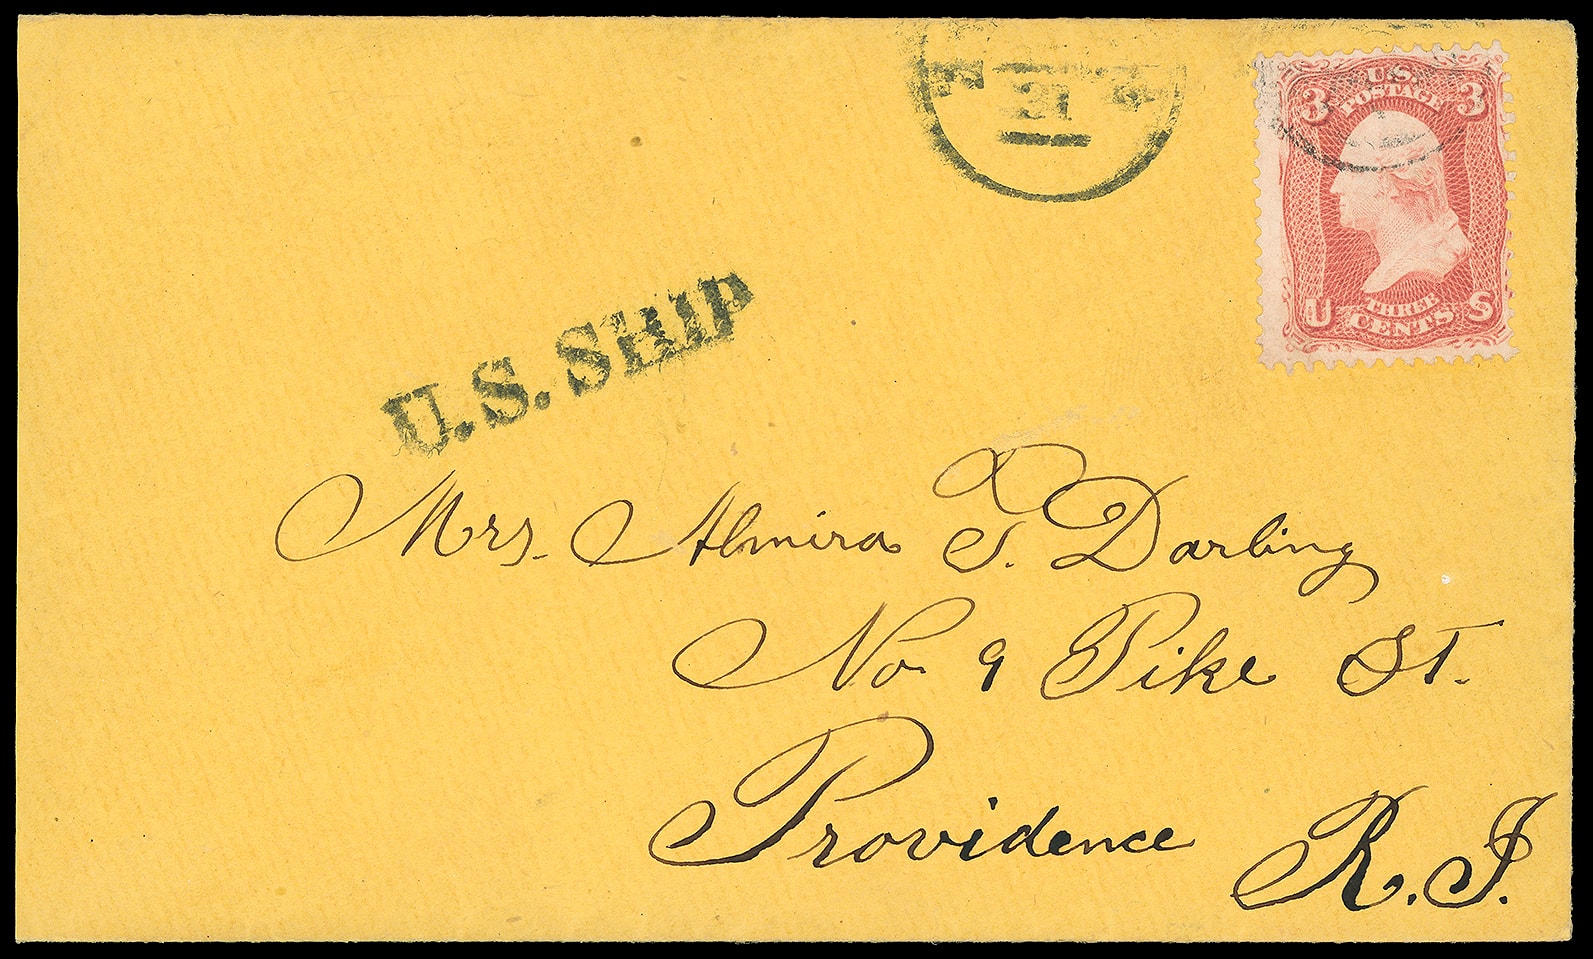 3 U.S. 3
POSTAGE
THREE
U CENTS S
U.S. SHIP
Mrs. Almira T. Darling
No. 9 Pike St.
Providence
R.I.